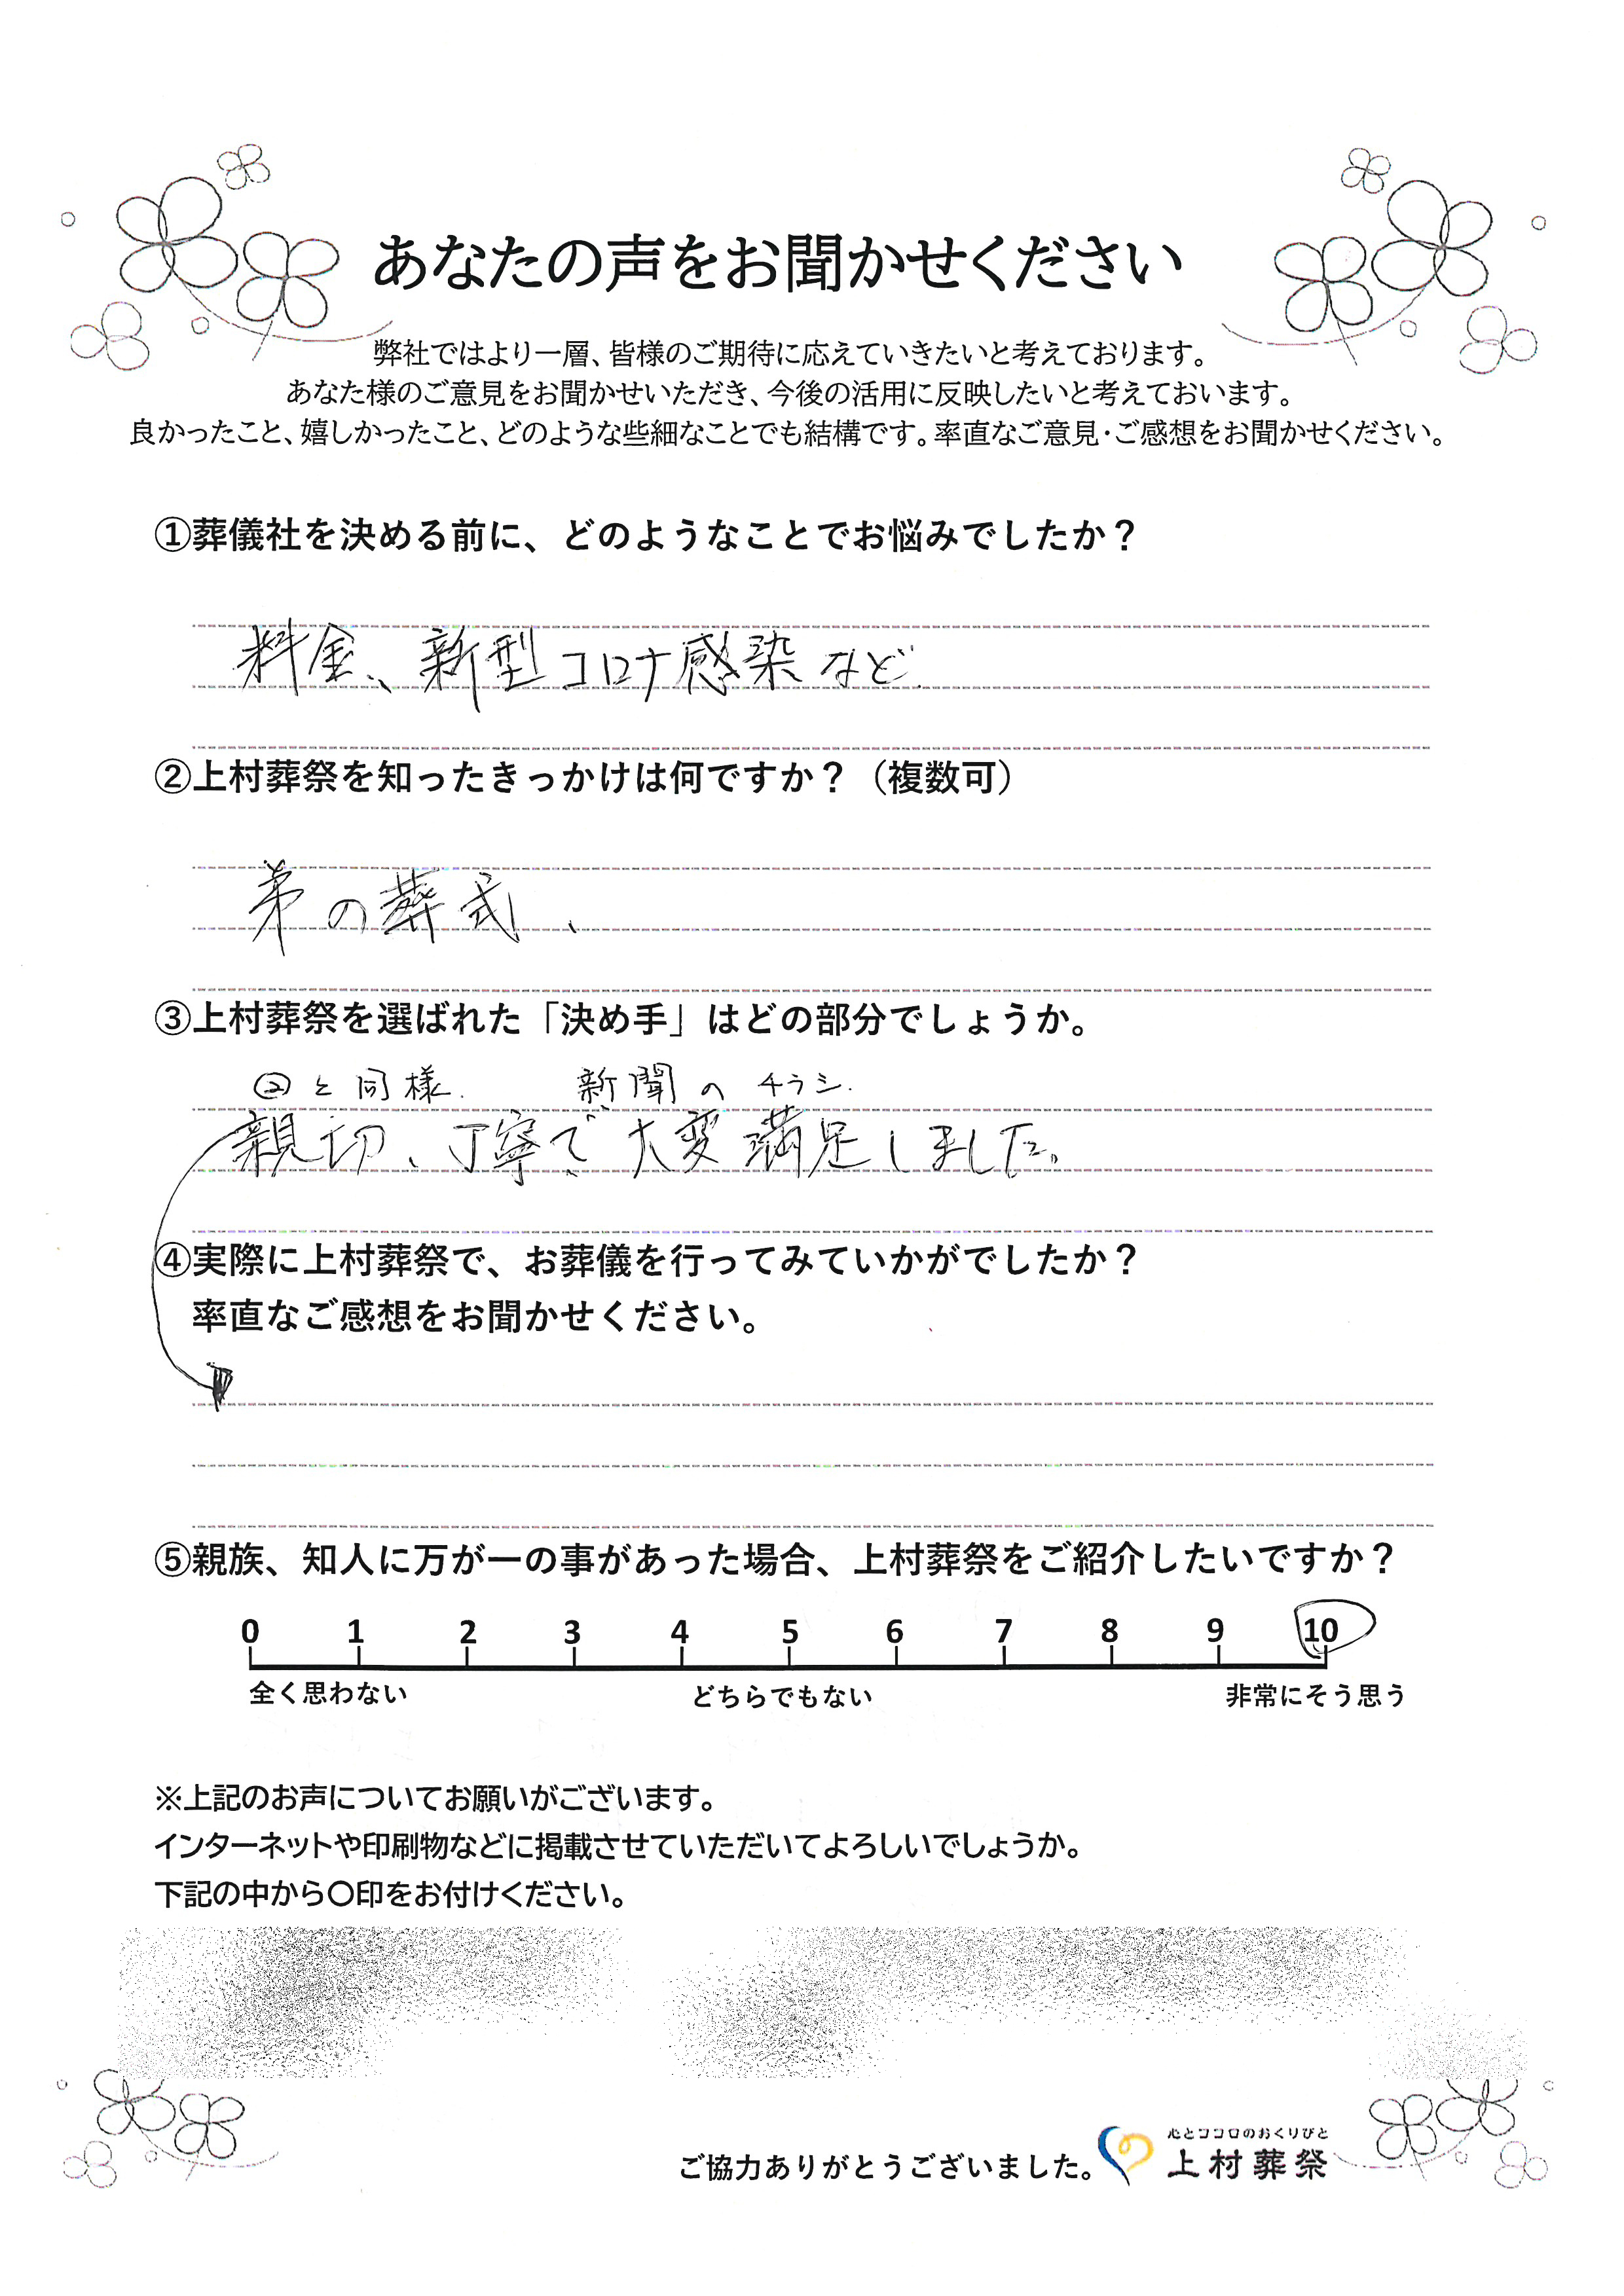 あなたの声をお聞かせください
弊社ではより一層、皆様のご期待に応えていきたいと考えております。
あなた様のご意見をお聞かせいただき、今後の活用に反映したいと考えておいます。
良かったこと、嬉しかったこと、どのような些細なことでも結構です。率直なご意見・ご感想をお聞かせください。
①葬儀社を決める前に、どのようなことでお悩みでしたか？
料金、新型コロナ感染など
②上村葬祭を知ったきっかけは何ですか？（複数可）
弟の葬式、
③上村葬祭を選ばれた「決め手」はどの部分でしょうか。
②と同様. 新聞のチラシ.
親切、丁寧で大変満足しました。
④実際に上村葬祭で、お葬儀を行ってみていかがでしたか？
率直なご感想をお聞かせください。
⑤親族、知人に万が一の事があった場合、上村葬祭をご紹介したいですか？
0 1 2 3 4 5 6 7 8 9 10
全く思わない どちらでもない 非常にそう思う
※上記のお声についてお願いがございます。
インターネットや印刷物などに掲載させていただいてよろしいでしょうか。
下記の中から〇印をお付けください。
心とココロのおくりびと
ご協力ありがとうございました。 上村葬祭